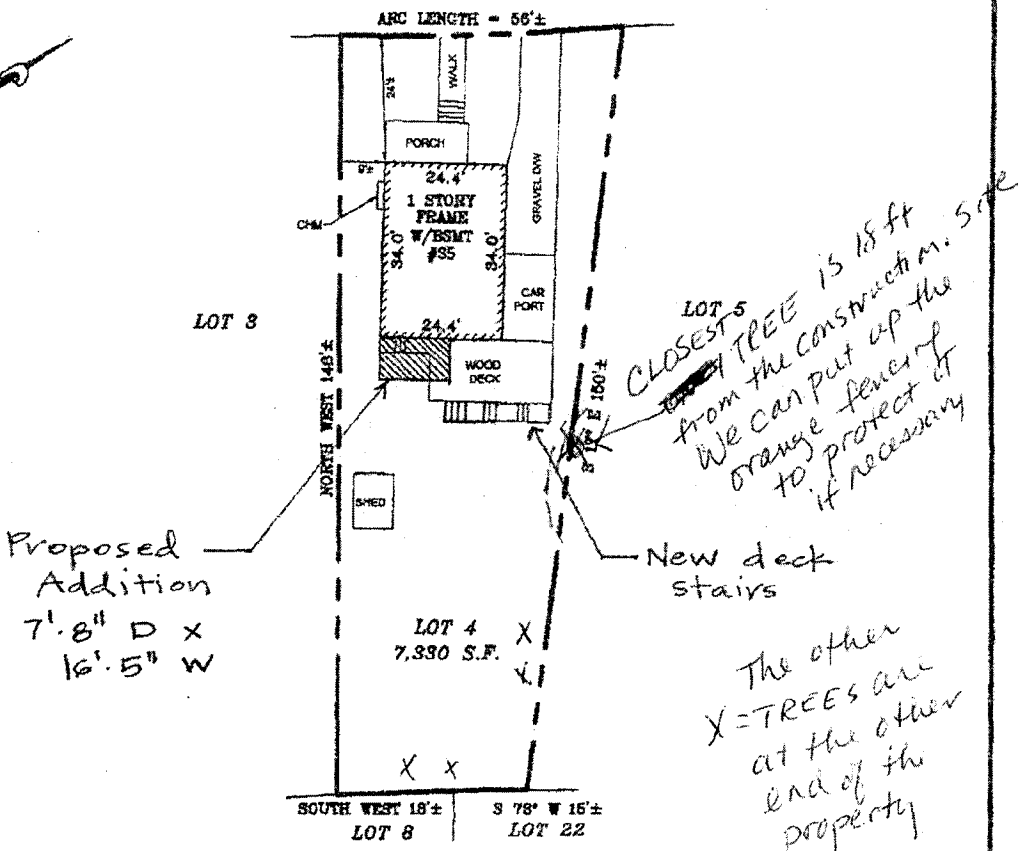 ARC LENGTH = 56'±
24'±
WALK
PORCH
9'±
24.4'
1 STORY
FRAME
W/BSMT
#35
34.0'
34.0'
CHM
GRAVEL D/W
CAR
PORT
24.4'
WOOD
DECK
LOT 3
LOT 5
NORTH WEST 146'±
E 150'±
SHED
CLOSEST TREE is 18 ft
from the construction site
We can put up the
orange fencing
to protect it
if necessary
Proposed
Addition
7'-8" D X
16'-5" W
New deck
stairs
LOT 4
7,330 S.F.
X
X
X X
The other
X = TREES are
at the other
end of the
property
SOUTH WEST 18'±
S 78° W 15'±
LOT 8
LOT 22